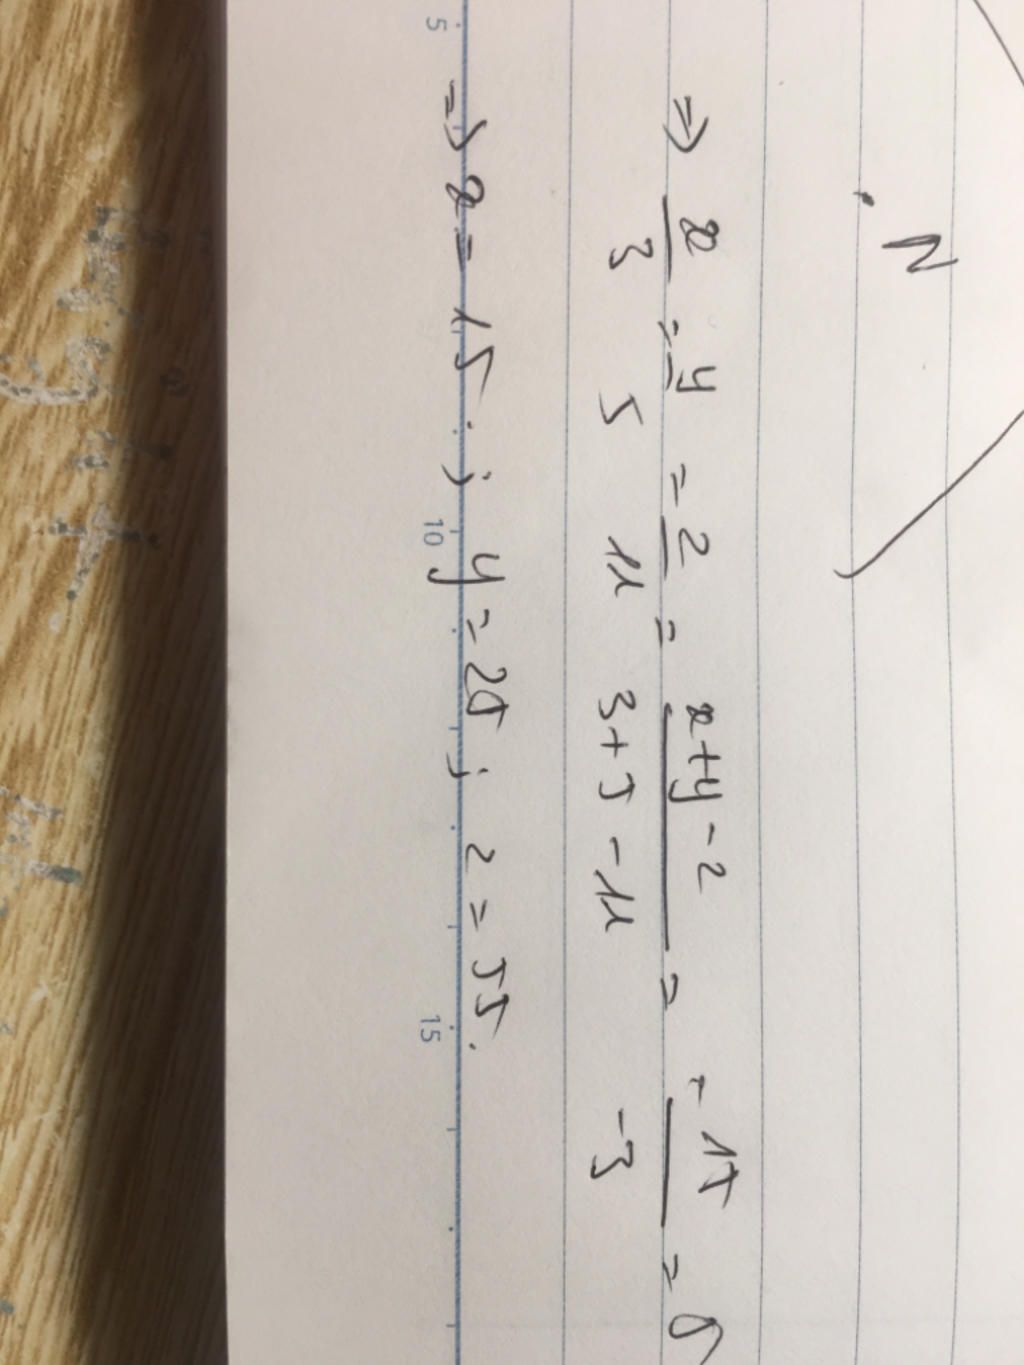 N
=> x/3 = y/5 = z/11 = x+y-z/3+5-11 = -15/-3 = 5
=> x = 15 ; y = 25 ; z = 55.
5 10 15